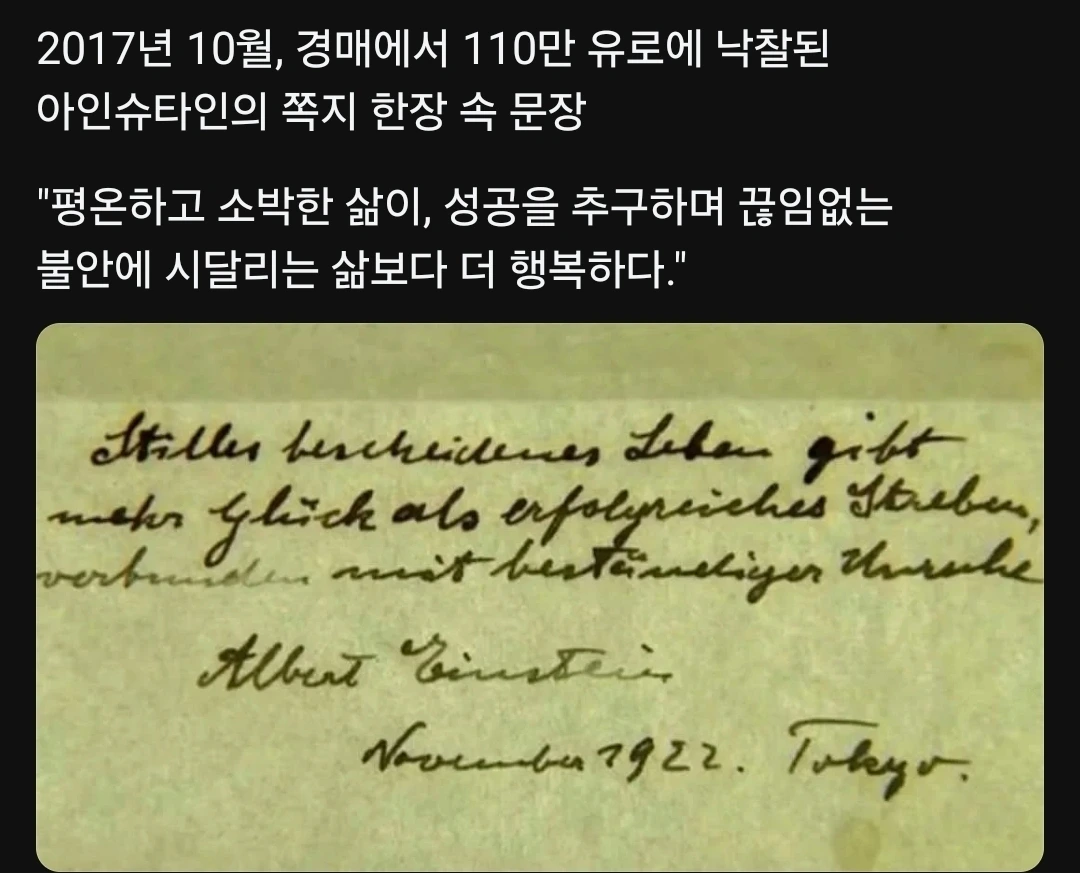 2017년 10월, 경매에서 110만 유로에 낙찰된
아인슈타인의 쪽지 한장 속 문장
"평온하고 소박한 삶이, 성공을 추구하며 끊임없는
불안에 시달리는 삶보다 더 행복하다."
Stilles bescheidenes Leben gibt
mehr Glück als erfolgreiches Streben,
verbunden mit beständiger Unruhe
Albert Einstein
November 1922. Tokyo.